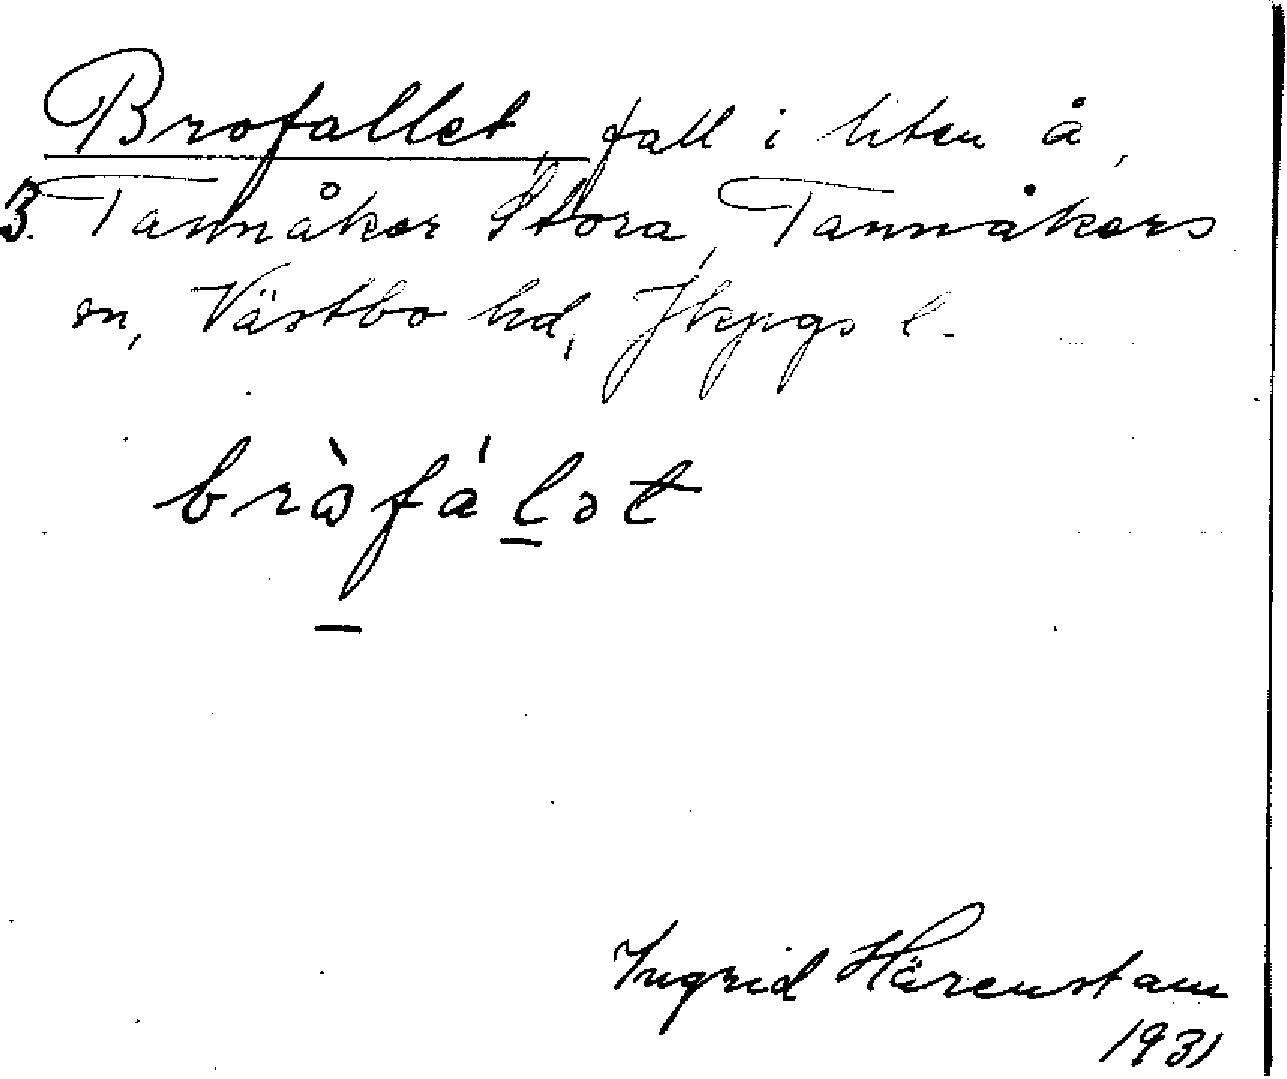 Brofallet, fall i liten å,
3. Tannåker Stora, Tannåkers
sn, Västbo hd, Jkpgs l.
bròfálət
Ingrid Härenstam
1931